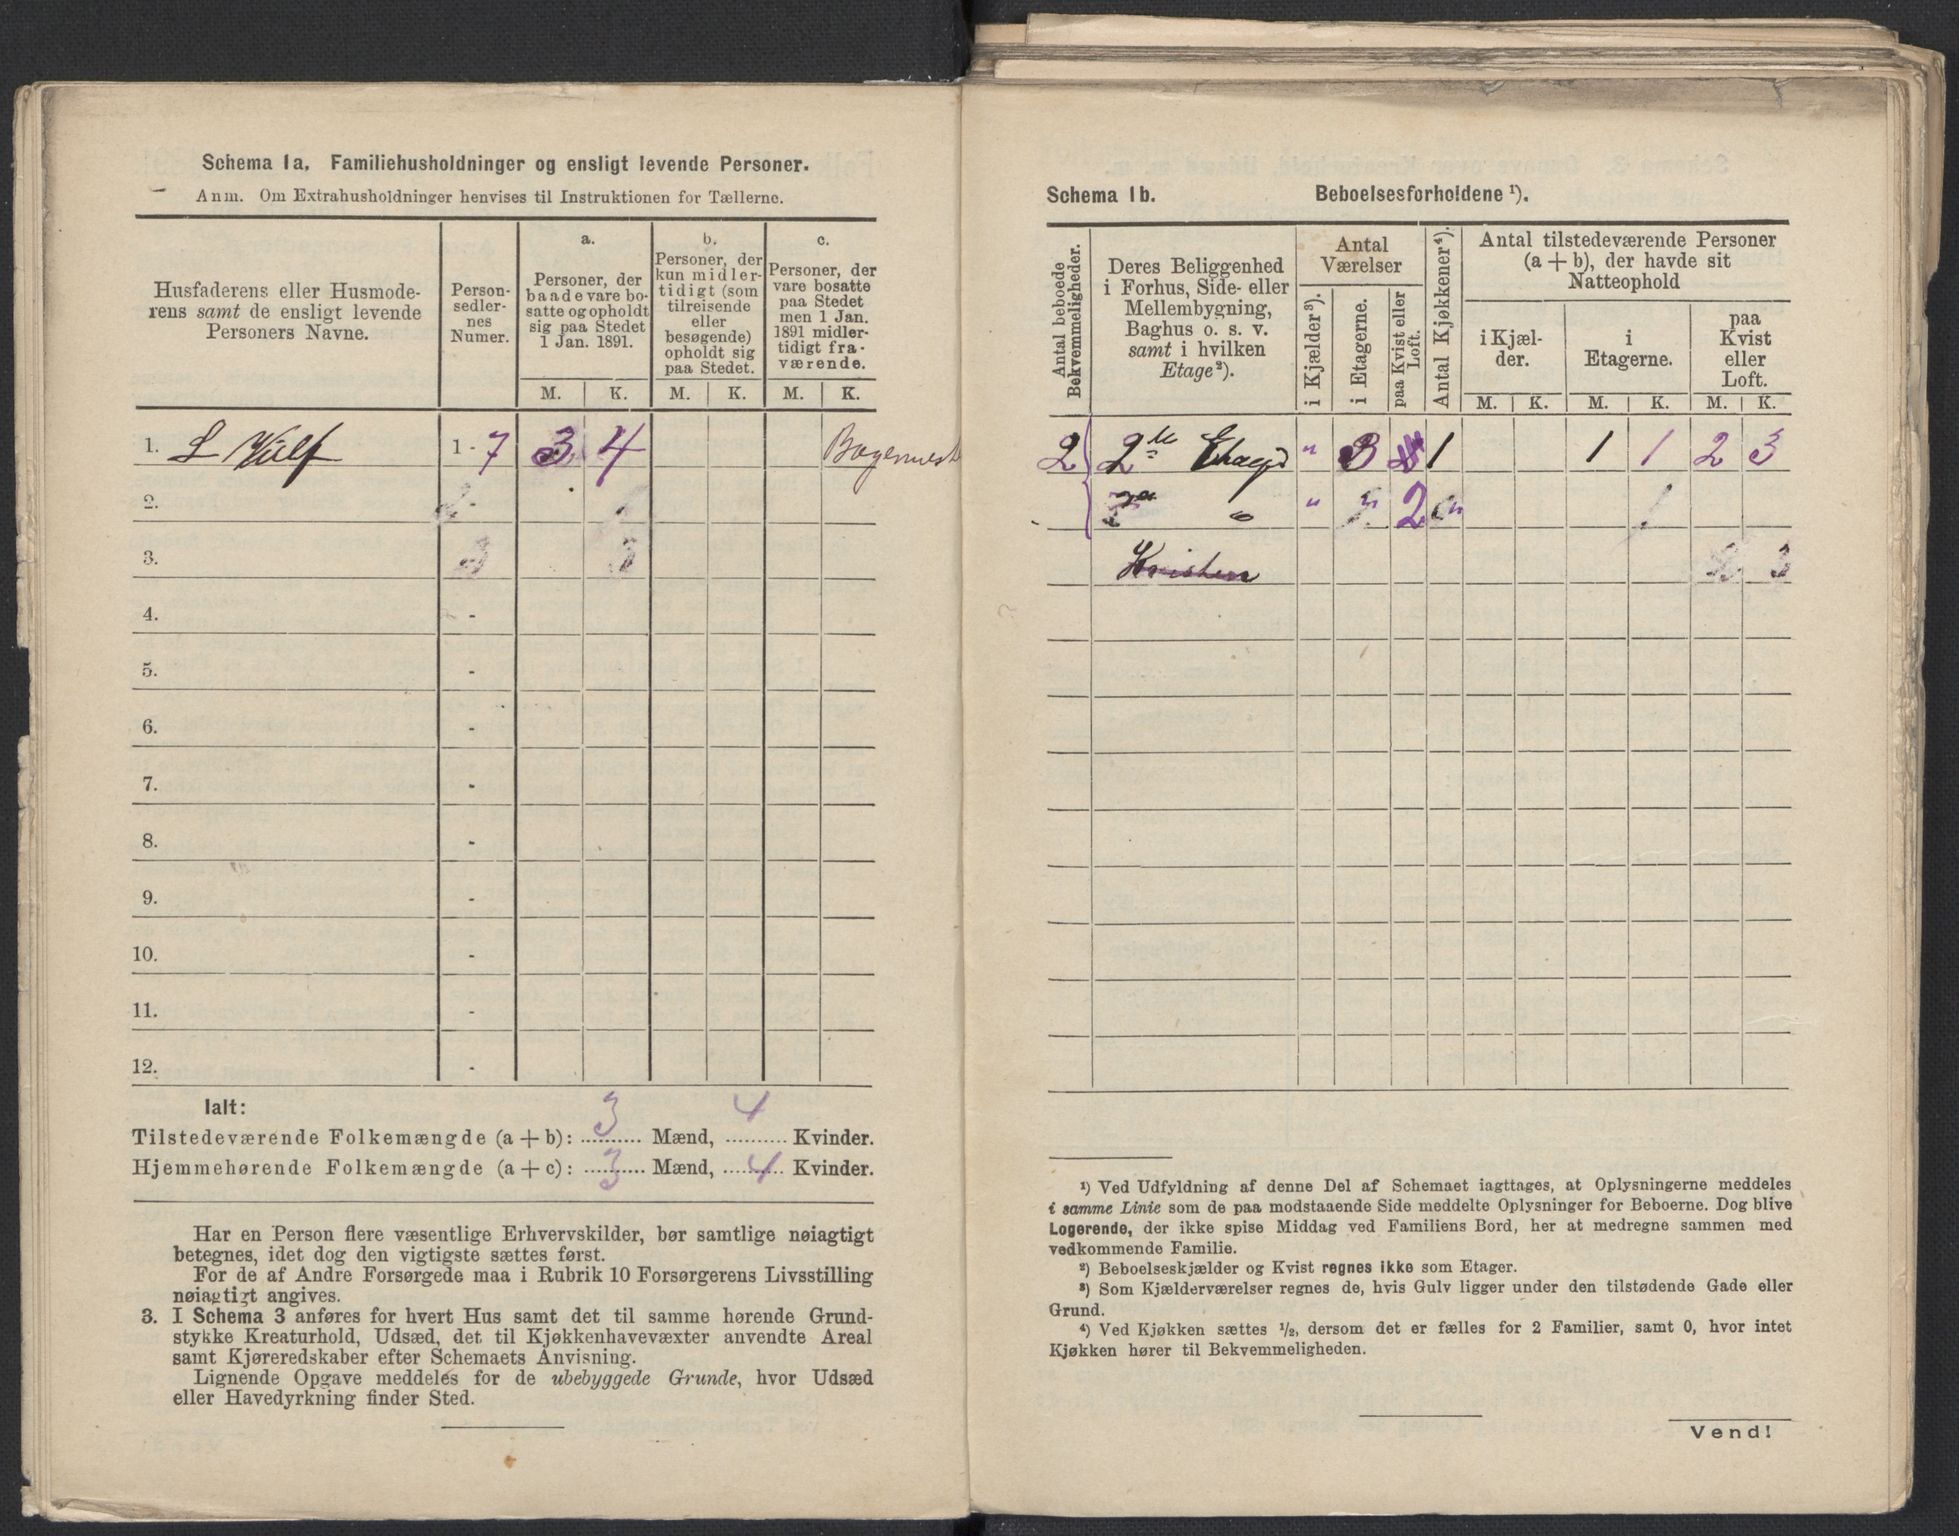 Schema 1a. Familiehusholdninger og ensligt levende Personer.
Anm. Om Extrahusholdninger henvises til Instruktionen for Tællerne.
Husfaderens eller Husmode-
rens samt de ensligt levende
Personers Navne.
Person-
sedler-
nes
Numer.
a.
Personer, der
baade vare bo-
satte og opholdt
sig paa Stedet
1 Jan. 1891.
b.
Personer, der
kun midler-
tidigt (som
tilreisende
eller
besøgende)
opholdt sig
paa Stedet.
c.
Personer, der
vare bosatte
paa Stedet
men 1 Jan.
1891 midler-
tidigt fra-
værende.
M. K. M. K. M. K.
1. L Wülf 1 - 7 3 4
2. -
3. 3 3
4. -
5. -
6. -
7. -
8. -
9. -
10. -
11. -
12. -
Ialt:
Tilstedeværende Folkemængde (a + b): 3 Mænd, 4 Kvinder.
Hjemmehørende Folkemængde (a + c): 3 Mænd, 4 Kvinder.
Har en Person flere væsentlige Erhvervskilder, bør samtlige nøiagtigt
betegnes, idet dog den vigtigste sættes først.
For de af Andre Forsørgede maa i Rubrik 10 Forsørgerens Livsstilling
nøiagtigt angives.
3. I Schema 3 anføres for hvert Hus samt det til samme hørende Grund-
stykke Kreaturhold, Udsæd, det til Kjøkkenhavevæxter anvendte Areal
samt Kjøreredskaber efter Schemaets Anvisning.
Lignende Opgave meddeles for de ubebyggede Grunde, hvor Udsæd
eller Havedyrkning finder Sted.
Schema 1b. Beboelsesforholdene ¹).
Antal beboede
Bekvemmeligheder.
Deres Beliggenhed
i Forhus, Side- eller
Mellembygning,
Baghus o. s. v.
samt i hvilken
Etage²).
Antal
Værelser
i Kjælder³).
i Etagerne.
paa Kvist eller
Loft.
Antal Kjøkkener⁴).
Antal tilstedeværende Personer
(a + b), der havde sit
Natteophold
i Kjæl-
der.
i
Etagerne.
paa
Kvist
eller
Loft.
M. K. M. K. M. K.
2 2de " 3 1 1 1 2 3
" " 2 1
Kvisten 3
¹) Ved Udfyldning af denne Del af Schemaet iagttages, at Oplysningerne meddeles
i samme Linie som de paa modstaaende Side meddelte Oplysninger for Beboerne. Dog blive
Logerende, der ikke spise Middag ved Familiens Bord, her at medregne sammen med
vedkommende Familie.
²) Beboelseskjælder og Kvist regnes ikke som Etager.
³) Som Kjælderværelser regnes de, hvis Gulv ligger under den tilstødende Gade eller
Grund.
⁴) Ved Kjøkken sættes ½, dersom det er fælles for 2 Familier, samt 0, hvor intet
Kjøkken hører til Bekvemmeligheden.
Vend!